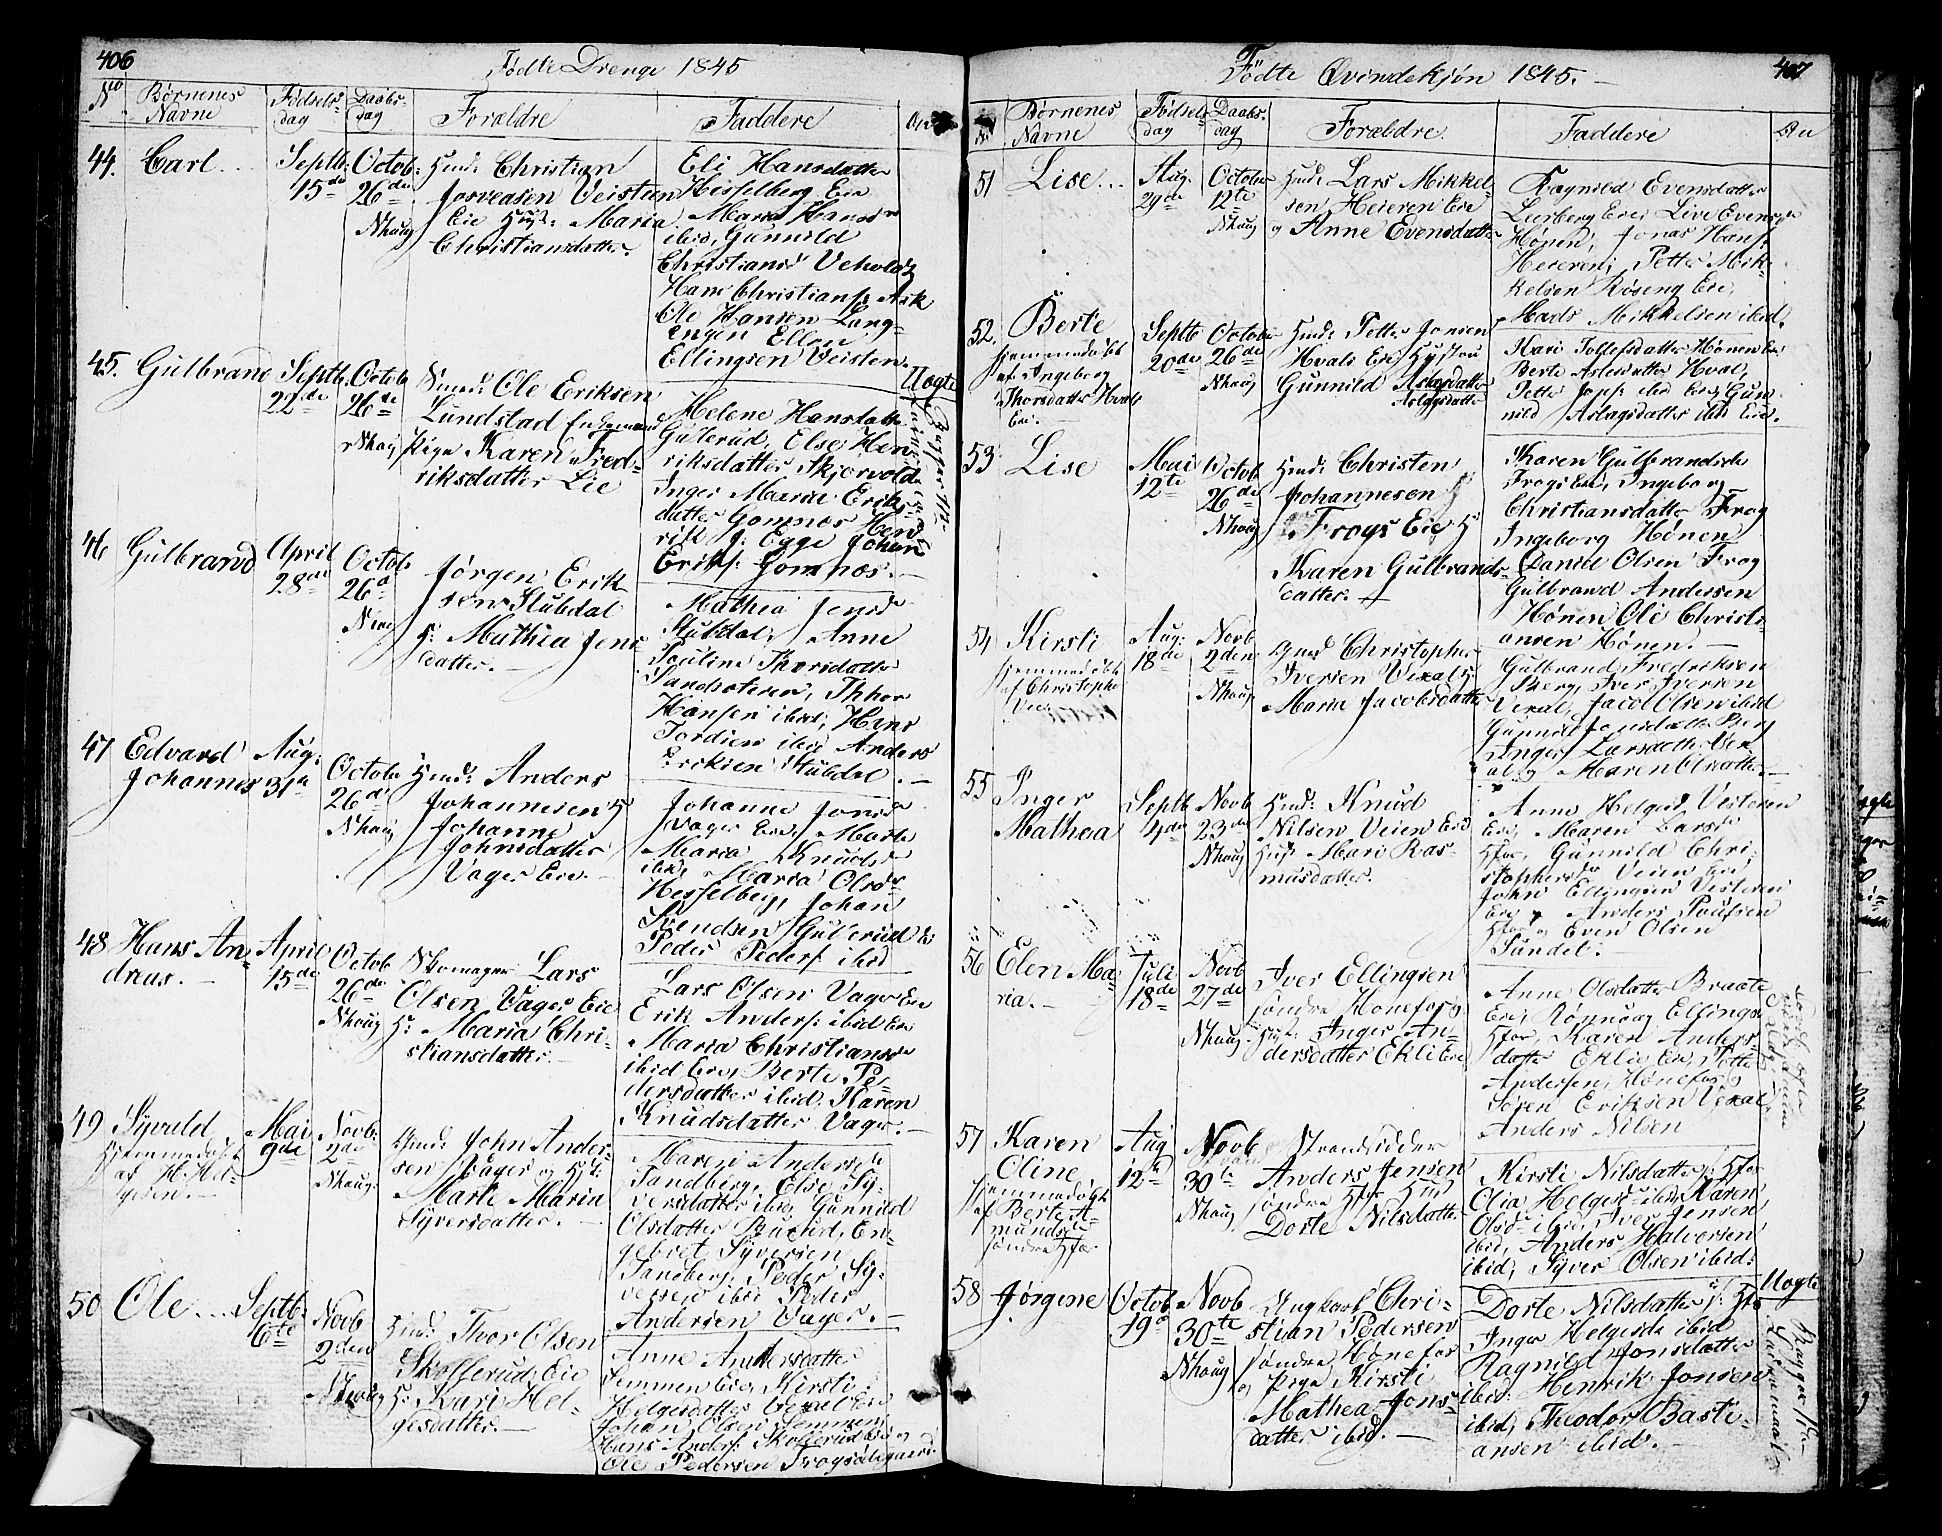 406
Fødte Drenge 1845
No Børnenes Navne Fødsels- dag Daabs- dag Forældre Faddere
44. Carl Septb: 15de Octob: 26de Nhaug
Huusm: Christian
Veistien
Eie Hust: Maria
Christiansdatter.
Eli Hansdatter
Hesselberg Eie
Maria Hansd
ibid, Gunnild
Christiansd Veholdt
Hans Christians: Ask
Ole Hansen Lang-
engen Ellen
Ellingsen Veisten.
45. Gulbrand Septb. 22de Octob 26de Nhaug
Smed: Ole Eriksen
Lundstad
Pige Karen Fred-
riksdatter Lie
Uægte
Helene Hansdatt
Guterud, Else Hen
riksdatter Skjørvold
Inger Marie Eriks
datter Gomnæs Hen
rik J: Egge Johan
Eriks: Gomnæs.
46 Gulbrand April 28de Octob 26de
Jørgen Erik
sen Stubdal
H: Mathea Jens
datter.
Mathea Jensd
Stubdal, Anne
Pauline Thorsdatter
Hansen ibid, Hans
ibid Anders
Eriksen Stubdal.
47 Edvard Johannes Aug: 31te Octobr 26de Nhaug
Huusm: Anders
Johannesen H
Johanne
Johnsdatter
Vager Eie
Johanne Jonsd
Vager Eie, Marte
Maria Knuds
ibid, Maria Olsd
Hesselberg, Johan
Svendsen Guterud Ei
Peder Peders: ibid
48 Hans An- dreas. April 15de Octob 26de Nhaug
Skomager Lars
Olsen Vager Eie
H: Maria Chri-
stiansdatter.
Lars Olsen Vager Eie
Erik Anders: ibid Eie
Maria Christiansd
ibid Eie, Berte Pe-
dersdatter ibid, Karen
Knudsdatter Vager.
49 Syverd Hjemmedøbt af H. Hel- gesen. Mai 9de Novb: 2de Nhaug
Huusm: John Ander-
sen Vager og Hst:
Marte Maria
Syversdatter.
Maren Andersd
Sandberg, Else Sy-
versdatter ibid, Gunnild
Olsdatter, En-
gebret Syversen
Sandberg, Peder Sy-
versen ibid Peder
Andersen Vager.
50 Ole Septb. 6te Novb 2den Nhaug
Huusm: Thor Olsen
Skollerud Eie
H: Kari Hel-
gesdatter.
Anne Andersdatter
Semmen Eie, Kirsti
Helgesdatter Vexal Eie
Johan Olsen Semmen
Hans Anders: Skollerud Eie og
Ole Pedersen Frogsødegaard.
407
Fødte Qvindekjøn 1845.
No Børnenes Navne Fødsels- dag Daabs- dag Forældre Faddere An
51 Lise Aug. 29de October 12te Nhaug
Huusm: Lars Mikkel-
sen Heieren Eie
og Anne Evensdatter
Ragnild Evensdatter
Lerberg Eie, Live Evensd
Hönen, Jonas Hans:
Heieren, Petter Mik-
kelsen Röseng Eie,
Mads Mikkelsen ibid.
52. Berte hjemmedøbt af Ingeborg Thorsdatter Hvals Eie. Septb 20de October 26de Nhaug
Huusm: Petter Jonsen
Hvals Eie Hustru
Gunnild Aslagsdatter
Aslagsdatter
Kari Tollefsdatter Hönen Eie
Berte Aslesdatter Hval,
Petter Jons: ibid Eie, Gun-
nild Aslagsdatter ibid Eie.
53 Lise Mai 12te Octob 26de Nhaug
Huusm: Christen
Johannesen
Frogs Eie H
Karen Gulbrands-
datter.
Karen Gulbrandsdr
Frogs Eie, Ingeborg
Christiansdatter Frog
Ingeborg Hönen
Daniel Olsen Frog
Gulbrand Andersen
Hönen Ole Christi-
ansen Hönen.
54 Kirsti hjemmedøbt af Christophe Aug: 18de Novb 2den Nhaug
Christophe
Iversen Vexal H
Maria Jacobsdatter
Gulbrand Fredriksen
Berg, Iver Iversen
Vexal, Jacob Olsen ibid
Gunnild Jonsdatter Berg
Inger Larsdatter Vex
al, og Maren Olsdatter.
55 Inger Mathea Septb 4de Novb 23de Nhaug
Huusm: Knud
Nilsen Veien Eie
Hust Mari Ras-
musdatter.
Anne Helgesd Vesteren
Eie, Maren Larsd
Hfos, Gunnild Chri-
stophersd Veien Eie
John Ellingsen Vesteren
Eie, Anders Poulsen
Hfos og Even Olsen
Sundet.
56 Elen Ma- ria. Juli 18de Novb 27de Nhaug.
Iver Ellingsen
söndre Honefos
Hust: Inger An-
dersdatter Ekli Eie
Anne Olsdatter Braate
Eie, Rönnoug Ellings
Hfos, Karen Anders-
datter Eklie Eie, Petter
Andersen Hönefos
Sören Eriksen Vexal
Anders Nilsen
57 Karen Oline hjemmedøbt af Berte A- mundsd söndre Hfos Aug 12te Novb 30te Nhaug
Strandsidder
Anders Jensen
söndre Hfos Hust
Dorte Nilsdatter
Kirsti Nilsdatter s: Hfos
Olia Helgesd ibid, Karen
Olsd ibid, Iver Jensen
ibid, Anders Halvorsen
ibid, Syver Olsen ibid.
58 Jørgine Octob 19de Novb 30te Nhaug
Ungkarl Chri-
stian Pedersen
söndre Hönefos
og Pige Kirsti
Mathea Jons-
datter ibid.
Uægte
Dorte Nilsdatter s: Hfos
Inger Helgesd ibid
Ragnild Jonsdatter
ibid, Henrik Jonsen
ibid, Theodor Basti-
ansen ibid.